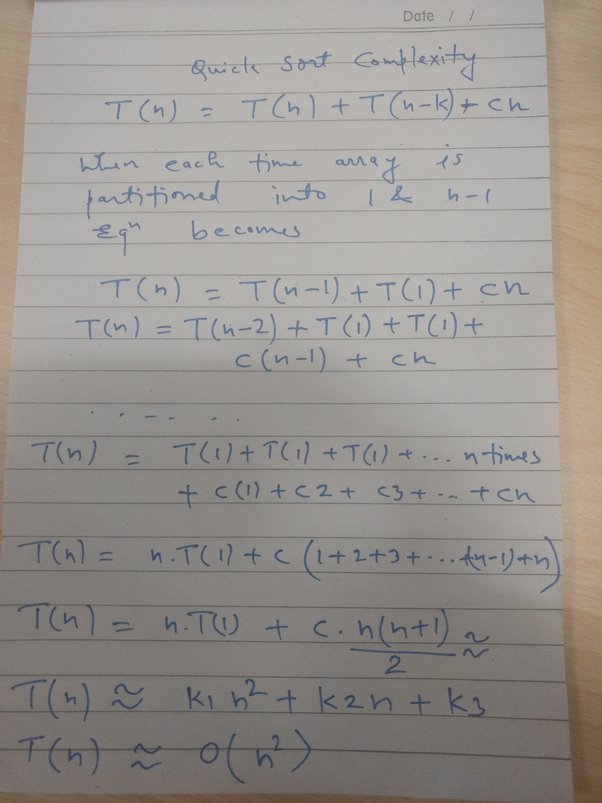 Date / /
Quick Sort Complexity
T(n) = T(n) + T(n-k) + cn
When each time array is
partitioned into 1 & n-1
Eqⁿ becomes
T(n) = T(n-1) + T(1) + cn
T(n) = T(n-2) + T(1) + T(1) +
c(n-1) + cn
. . - - . . .
T(n) = T(1) + T(1) + T(1) + ... n times
+ c(1) + c2 + c3 + ... + cn
T(n) = n.T(1) + c (1+2+3+ ... +(n-1)+n)
T(n) = n.T(1) + c. n(n+1)/2 ≈
T(n) ≈ k1 n² + k2n + k3
T(n) ≈ O(n²)